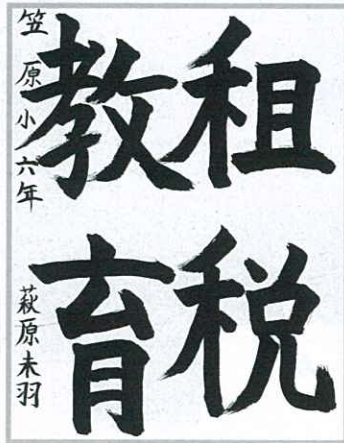 租税
教育
笠原小六年 萩原未羽